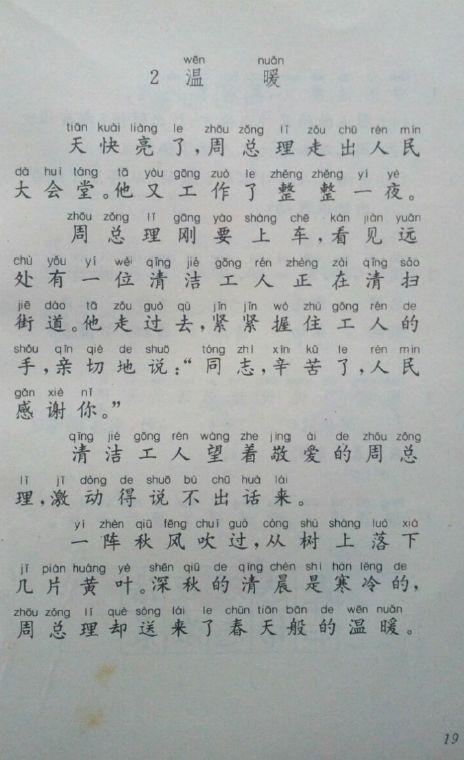 wēn nuǎn
2 温 暖
tiān kuài liàng le zhōu zǒng lǐ zǒu chū rén mín
天快亮了,周总理走出人民
dà huì táng tā yòu gōng zuò le zhěng zhěng yí yè
大会堂。他又工作了整整一夜。
zhōu zǒng lǐ gāng yào shàng chē kàn jiàn yuǎn
周总理刚要上车,看见远
chù yǒu yí wèi qīng jié gōng rén zhèng zài qīng sǎo
处有一位清洁工人正在清扫
jiē dào tā zǒu guò qù jǐn jǐn wò zhù gōng rén de
街道。他走过去,紧紧握住工人的
shǒu qīn qiè de shuō tóng zhì xīn kǔ le rén mín
手,亲切地说:“同志,辛苦了,人民
gǎn xiè nǐ
感谢你。”
qīng jié gōng rén wàng zhe jìng ài de zhōu zǒng
清洁工人望着敬爱的周总
lǐ jī dòng de shuō bù chū huà lái
理,激动得说不出话来。
yí zhèn qiū fēng chuī guò cóng shù shàng luò xià
一阵秋风吹过,从树上落下
jǐ piàn huáng yè shēn qiū de qīng chén shì hán lěng de
几片黄叶。深秋的清晨是寒冷的,
zhōu zǒng lǐ què sòng lái le chūn tiān bān de wēn nuǎn
周总理却送来了春天般的温暖。
19